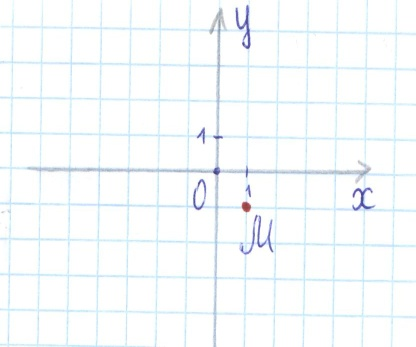 y
1
0
1
x
M